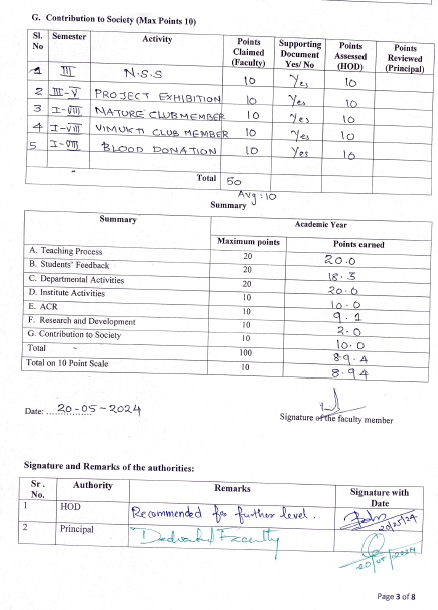 G. Contribution to Society (Max Points 10)
Sl. No Semester Activity Points Claimed (Faculty) Supporting Document Yes/ No Points Assessed (HOD) Points Reviewed (Principal)
1 III N.S.S 10 Yes 10
2 III-V PROJECT EXHIBITION 10 Yes 10
3 I-VIII NATURE CLUB MEMBER 10 Yes 10
4 I-VIII VIMUKTI CLUB MEMBER 10 Yes 10
5 I-VIII BLOOD DONATION 10 Yes 10
Total 50
Avg : 10
Summary
Summary Academic Year
Maximum points Points earned
A. Teaching Process 20 20.0
B. Students' Feedback 20 18.3
C. Departmental Activities 20 20.0
D. Institute Activities 10 10.0
E. ACR 10 9.1
F. Research and Development 10 2.0
G. Contribution to Society 10 10.0
Total 100 89.4
Total on 10 Point Scale 10 8.94
Date: 20-05-2024
Signature of the faculty member
Signature and Remarks of the authorities:
Sr. No. Authority Remarks Signature with Date
1 HOD Recommended for further level. 20/5/24
2 Principal Dedicated Faculty 20/05/2024
Page 3 of 8